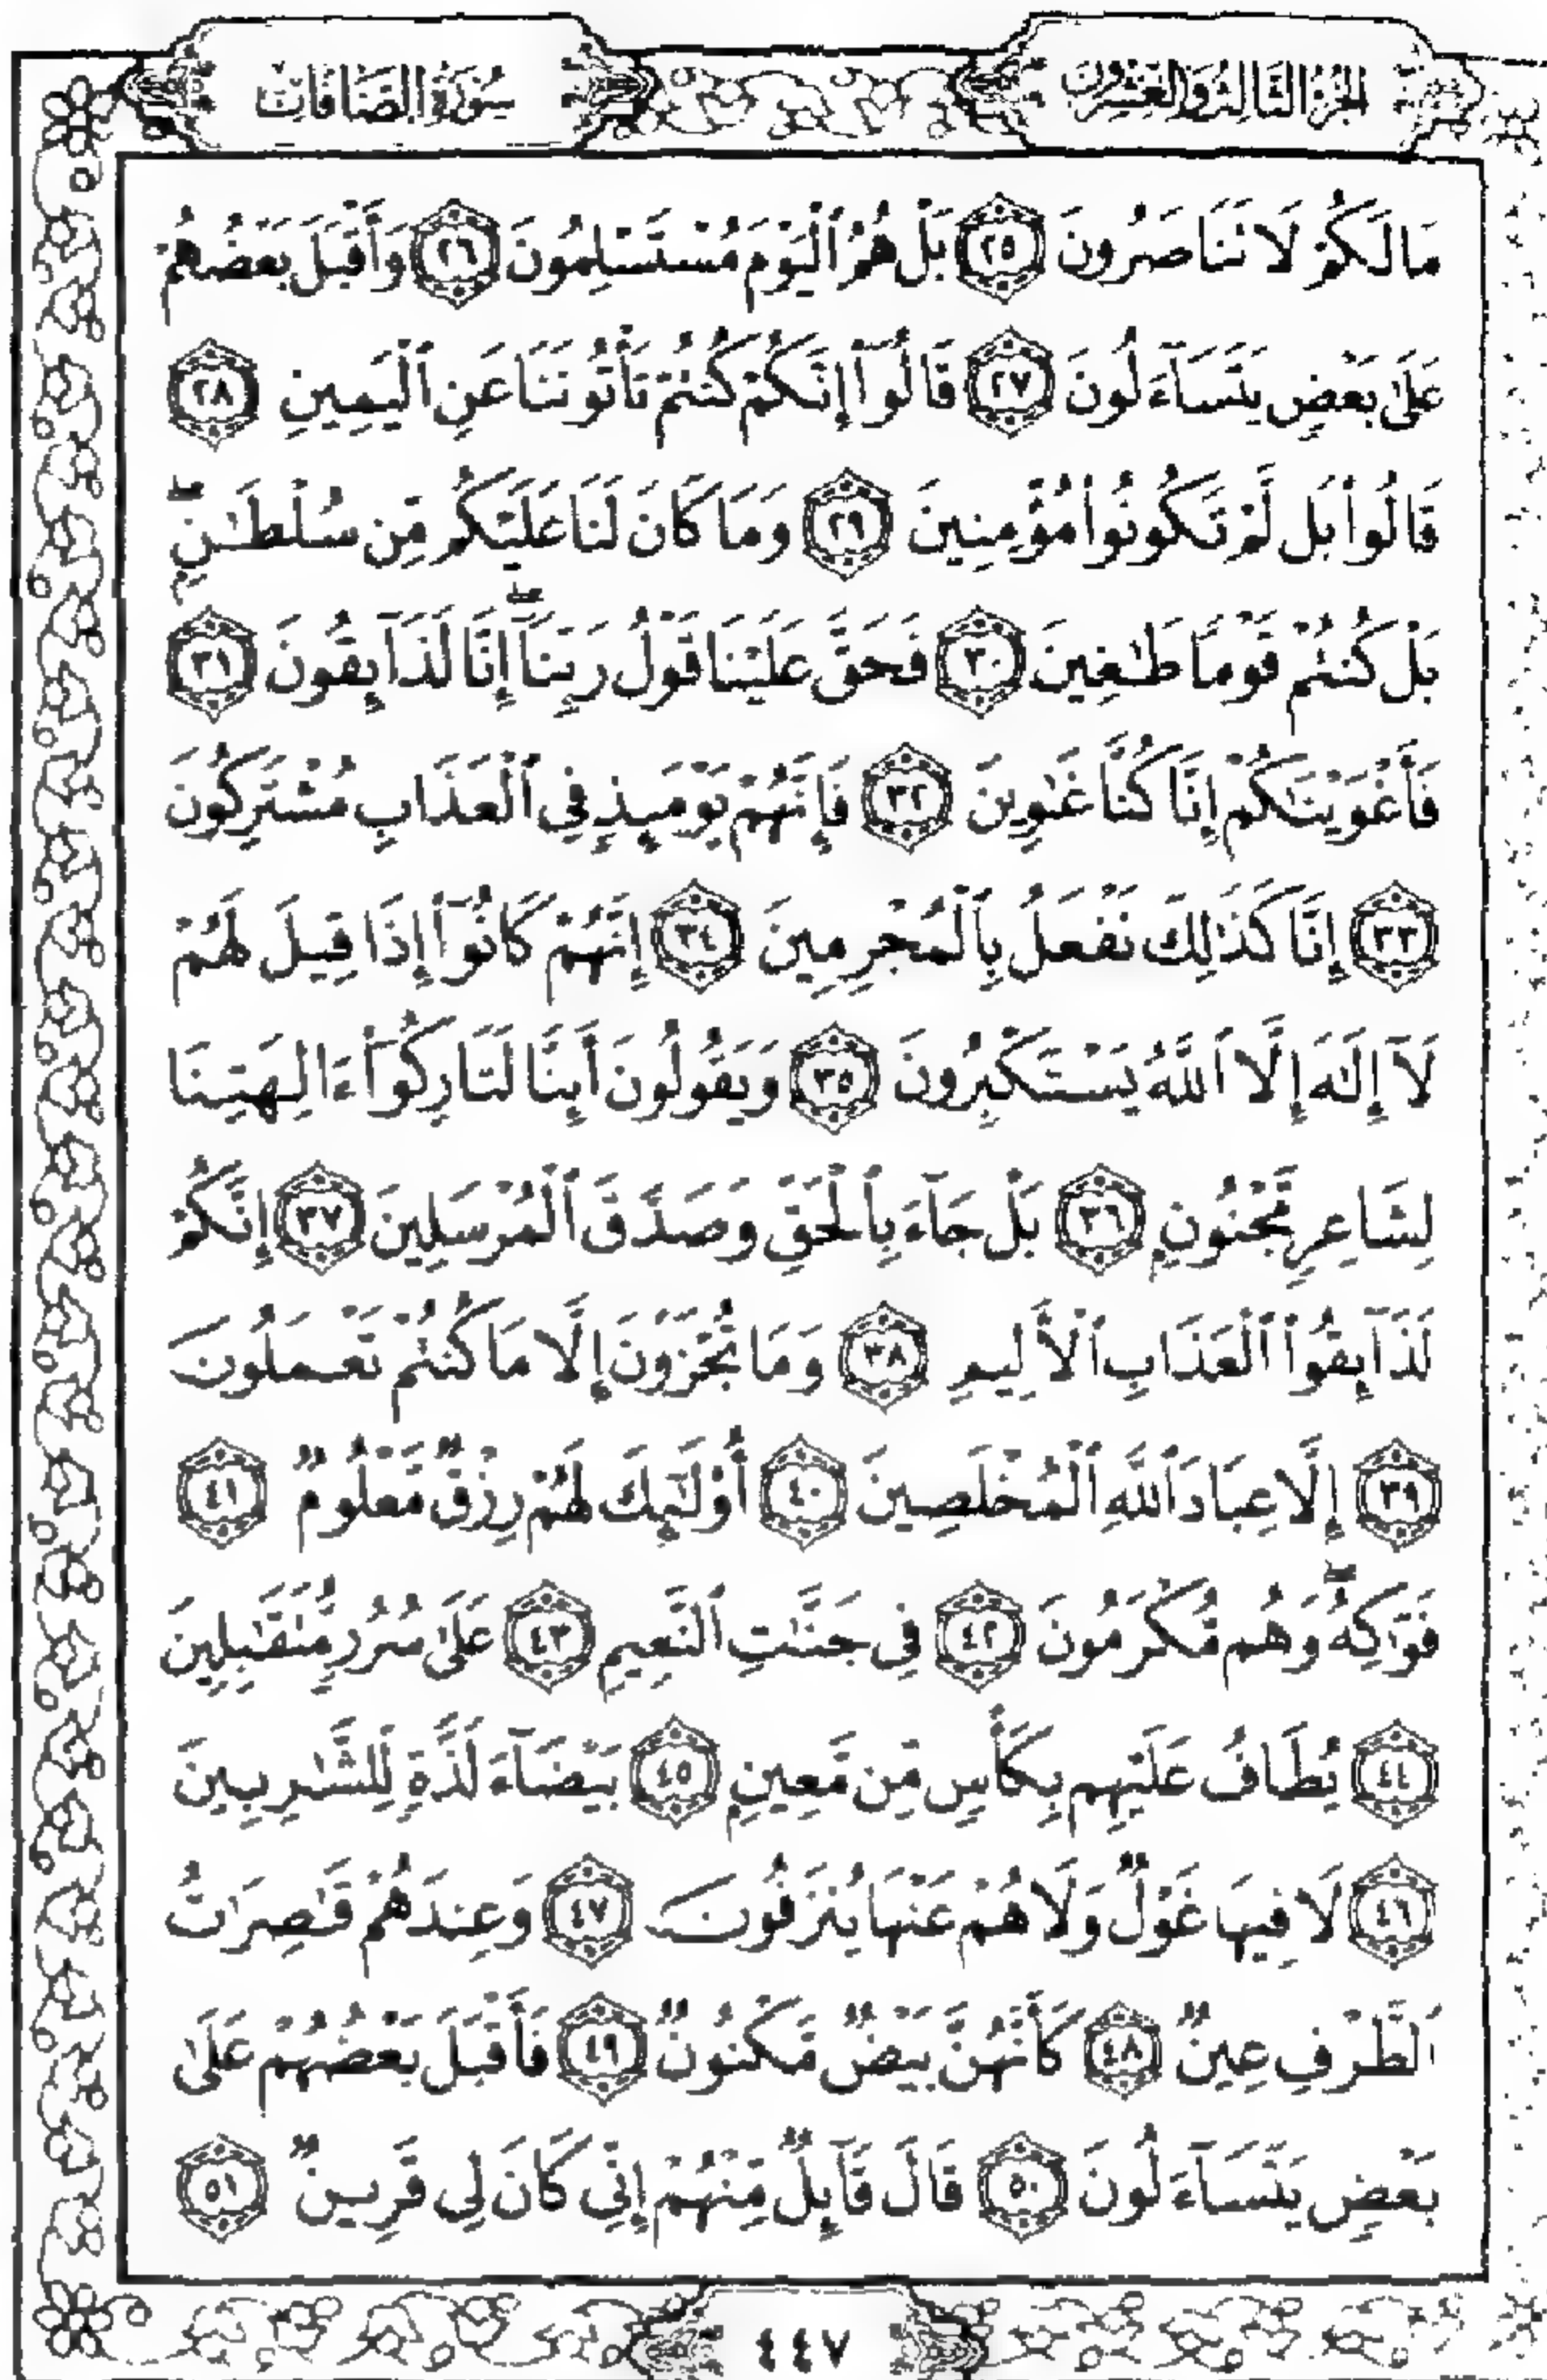 الجزء الثالث والعشرون
سورة الصافات
مَا لَكُمْ لَا تَنَاصَرُونَ ٢٥ بَلْ هُمُ ٱلْيَوْمَ مُسْتَسْلِمُونَ ٢٦ وَأَقْبَلَ بَعْضُهُمْ
عَلَىٰ بَعْضٍ يَتَسَآءَلُونَ ٢٧ قَالُوٓا۟ إِنَّكُمْ كُنتُمْ تَأْتُونَنَا عَنِ ٱلْيَمِينِ ٢٨
قَالُوا۟ بَل لَّمْ تَكُونُوا۟ مُؤْمِنِينَ ٢٩ وَمَا كَانَ لَنَا عَلَيْكُم مِّن سُلْطَـٰنٍۭ ۖ
بَلْ كُنتُمْ قَوْمًا طَـٰغِينَ ٣٠ فَحَقَّ عَلَيْنَا قَوْلُ رَبِّنَآ ۖ إِنَّا لَذَآئِقُونَ ٣١
فَأَغْوَيْنَـٰكُمْ إِنَّا كُنَّا غَـٰوِينَ ٣٢ فَإِنَّهُمْ يَوْمَئِذٍ فِى ٱلْعَذَابِ مُشْتَرِكُونَ
٣٣ إِنَّا كَذَٰلِكَ نَفْعَلُ بِٱلْمُجْرِمِينَ ٣٤ إِنَّهُمْ كَانُوٓا۟ إِذَا قِيلَ لَهُمْ
لَآ إِلَـٰهَ إِلَّا ٱللَّهُ يَسْتَكْبِرُونَ ٣٥ وَيَقُولُونَ أَئِنَّا لَتَارِكُوٓا۟ ءَالِهَتِنَا
لِشَاعِرٍ مَّجْنُونٍۭ ٣٦ بَلْ جَآءَ بِٱلْحَقِّ وَصَدَّقَ ٱلْمُرْسَلِينَ ٣٧ إِنَّكُمْ
لَذَآئِقُوا۟ ٱلْعَذَابِ ٱلْأَلِيمِ ٣٨ وَمَا تُجْزَوْنَ إِلَّا مَا كُنتُمْ تَعْمَلُونَ
٣٩ إِلَّا عِبَادَ ٱللَّهِ ٱلْمُخْلَصِينَ ٤٠ أُو۟لَـٰٓئِكَ لَهُمْ رِزْقٌ مَّعْلُومٌ ٤١
فَوَٰكِهُ ۖ وَهُم مُّكْرَمُونَ ٤٢ فِى جَنَّـٰتِ ٱلنَّعِيمِ ٤٣ عَلَىٰ سُرُرٍ مُّتَقَـٰبِلِينَ
٤٤ يُطَافُ عَلَيْهِم بِكَأْسٍ مِّن مَّعِينٍۭ ٤٥ بَيْضَآءَ لَذَّةٍ لِّلشَّـٰرِبِينَ
٤٦ لَا فِيهَا غَوْلٌ وَلَا هُمْ عَنْهَا يُنزَفُونَ ٤٧ وَعِندَهُمْ قَـٰصِرَٰتُ
ٱلطَّرْفِ عِينٌ ٤٨ كَأَنَّهُنَّ بَيْضٌ مَّكْنُونٌ ٤٩ فَأَقْبَلَ بَعْضُهُمْ عَلَىٰ
بَعْضٍ يَتَسَآءَلُونَ ٥٠ قَالَ قَآئِلٌ مِّنْهُمْ إِنِّى كَانَ لِى قَرِينٌ ٥١
٤٤٧